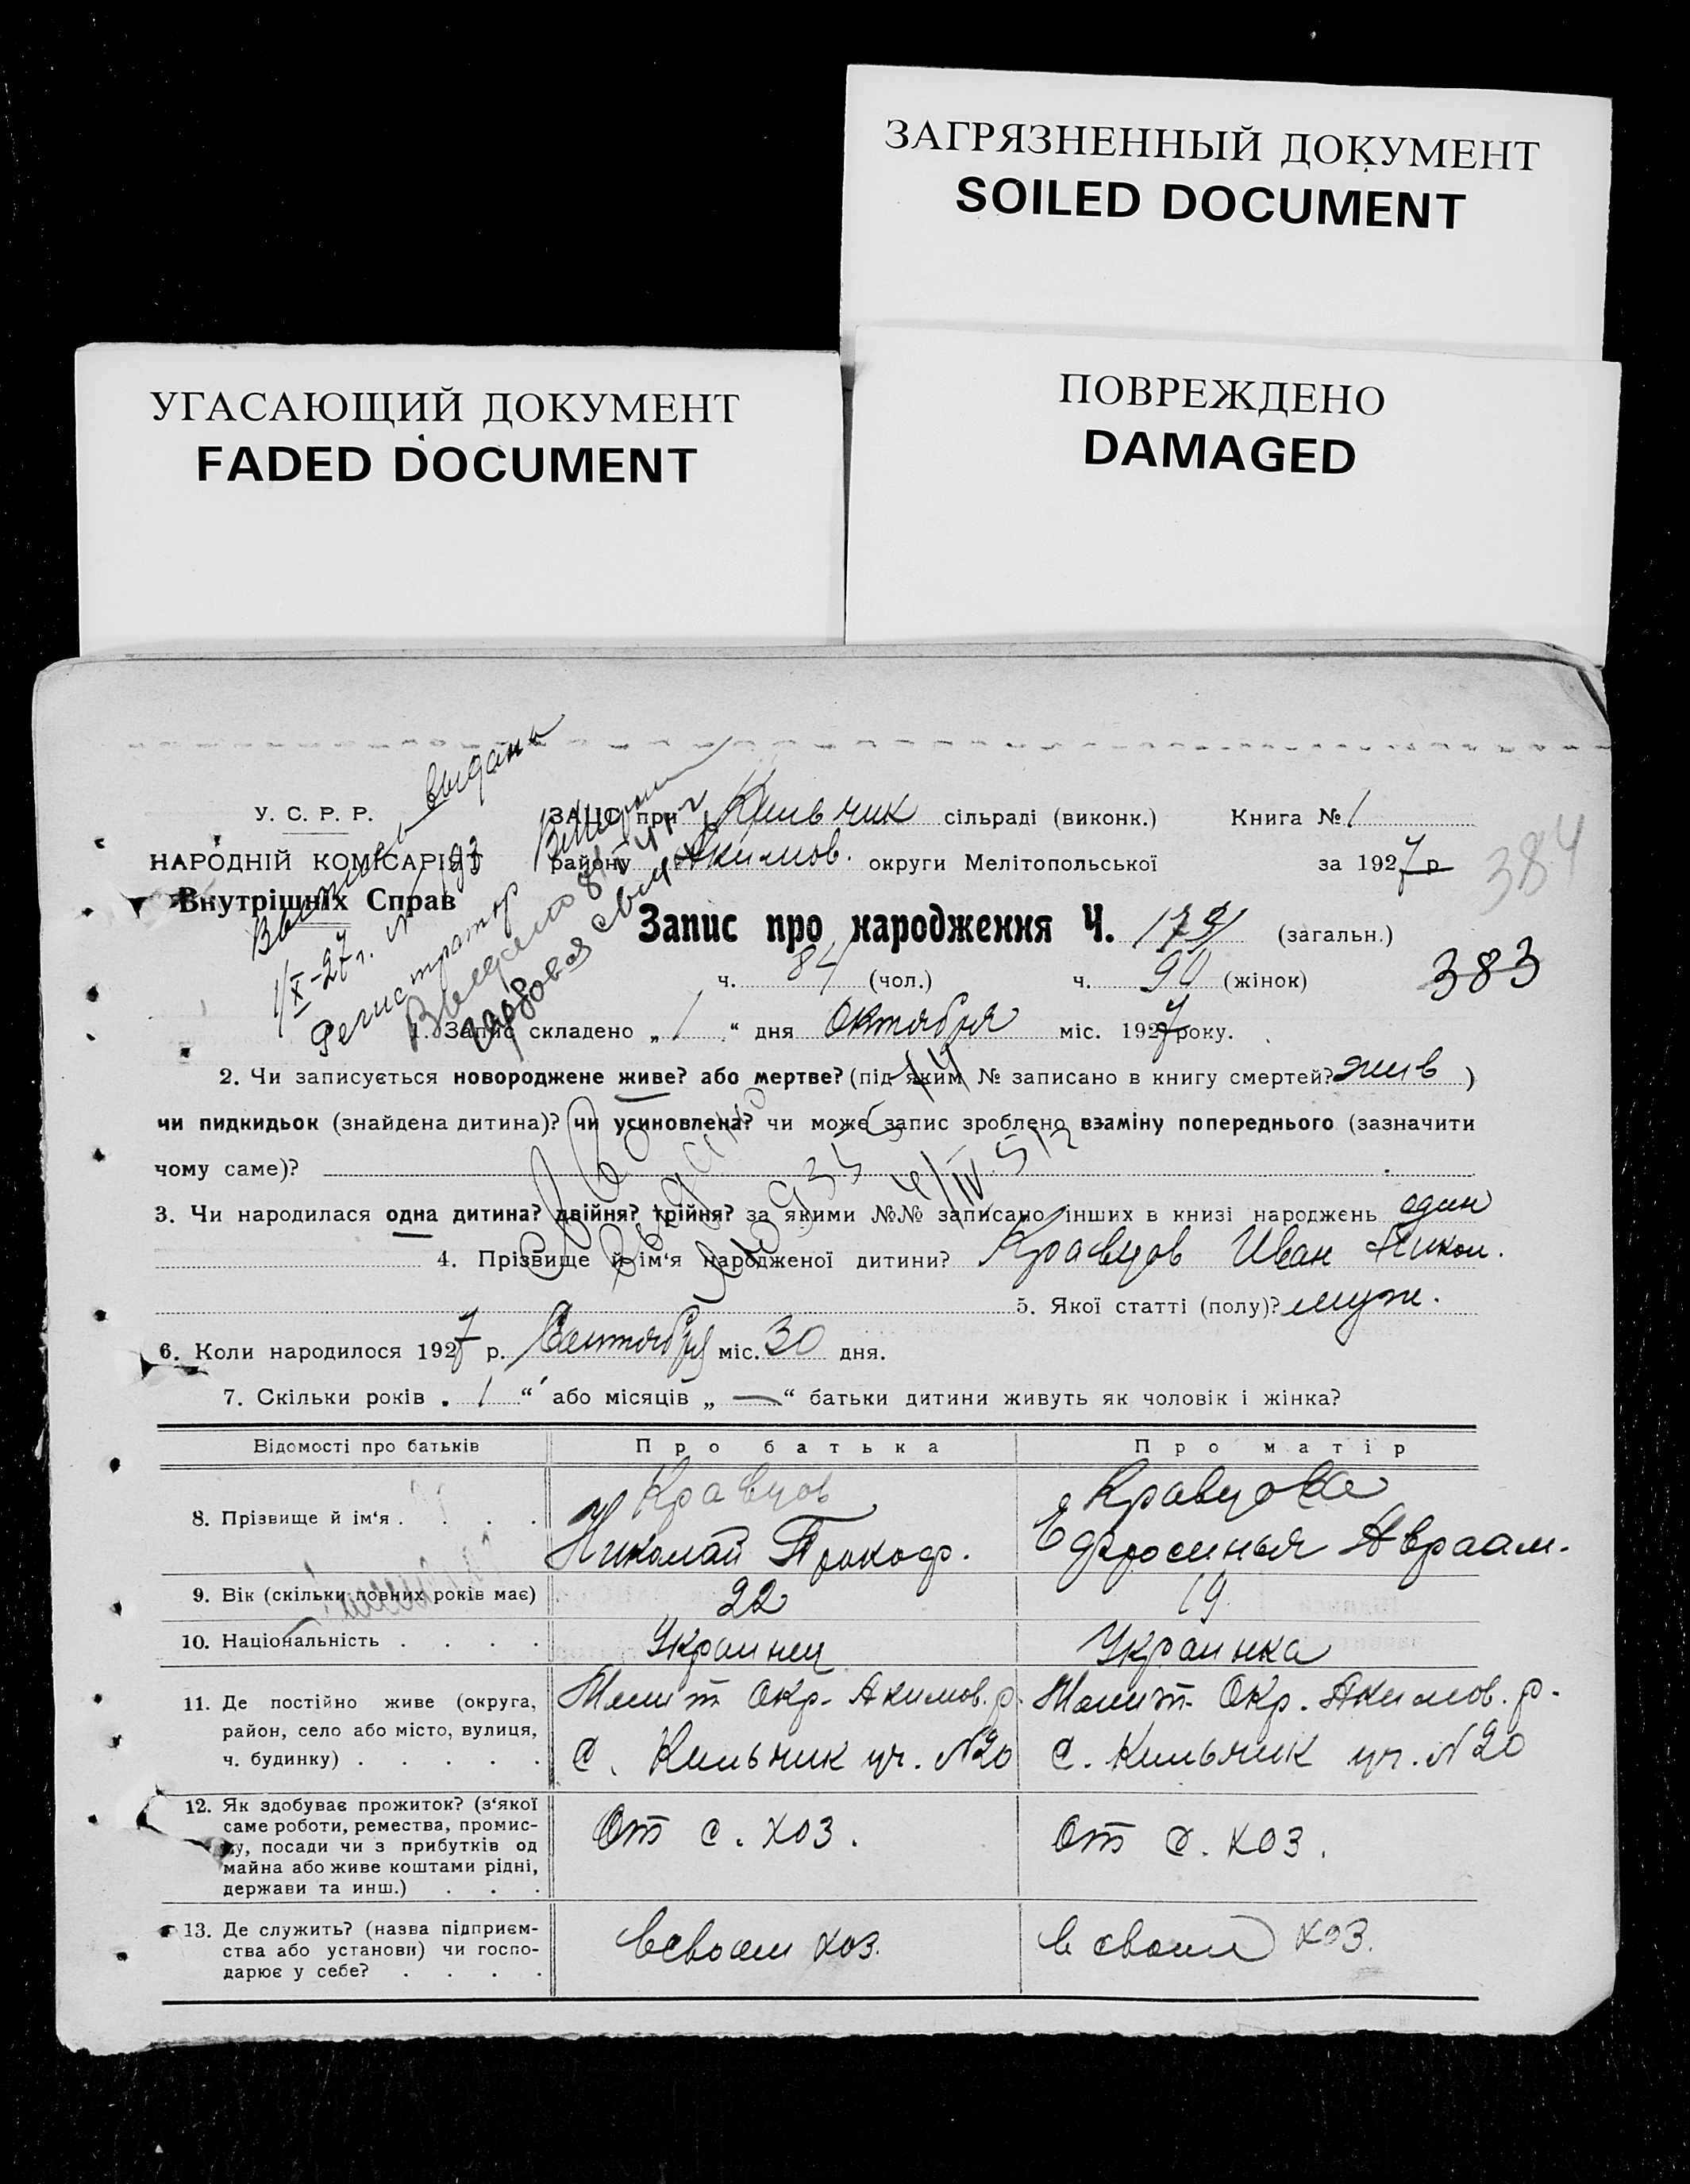 ЗАГРЯЗНЕННЫЙ ДОКУМЕНТ
SOILED DOCUMENT
УГАСАЮЩИЙ ДОКУМЕНТ
FADED DOCUMENT
ПОВРЕЖДЕНО
DAMAGED
У. С. Р. Р.
НАРОДНІЙ КОМІСАРІЯТ
Внутрішніх Справ
выдана
1/X-27 г. № 93
Регистратор
ЗАПС при Кильчик сільраді (виконк.) Книга № 1
району Акимов. округи Мелітопольської за 1927 р
384
Запис про народження Ч. (загальн.)
ч. 84 (чол.) ч. 90 (жінок)
383
1. Запис складено „ 1 “ дня Октября міс. 1927 року.
2. Чи записується новороджене живе? або мертве? (під яким № записано в книгу смертей? жив )
чи пидкидьок (знайдена дитина)? чи усиновлена? чи може запис зроблено взаміну попереднього (зазначити
чому саме)?
3. Чи народилася одна дитина? двійня? трійня? за якими №№ записано інших в книзі народжень один
4. Прізвище й ім‘я народженої дитини? Кравцов Иван Никол.
5. Якої статті (полу)? муж.
6. Коли народилось 1927 р. Сентября міс. 30 дня.
7. Скільки років „ 1 “ або місяців „ — “ батьки дитини живуть як чоловік і жінка?
Відомості про батьків Про батька Про матір
8. Прізвище й ім‘я . . . . Кравцов Кравцова
Николай Прокоф. Ефросинья Авраам.
9. Вік (скільки повних років має) 22 19
10. Національність . . . . Украинец Украинка
11. Де постійно живе (округа, район, село або місто, вулиця, ч. будинку) . . . . .
Мелит Окр. Акимов. р. Мелит. Окр. Акимов. р.
С. Кильчик уч. №20 С. Кильчик уч. №20
12. Як здобуває прожиток? (з‘якої
саме роботи, ремества, промис-
у, посади чи з прибутків од
майна або живе коштами рідні,
держави та инш.) . . .
От с. хоз. От с. хоз.
13. Де служить? (назва підприєм-
ства або установи) чи госпо-
дарює у себе? . . . .
в своем хоз. в своем хоз.